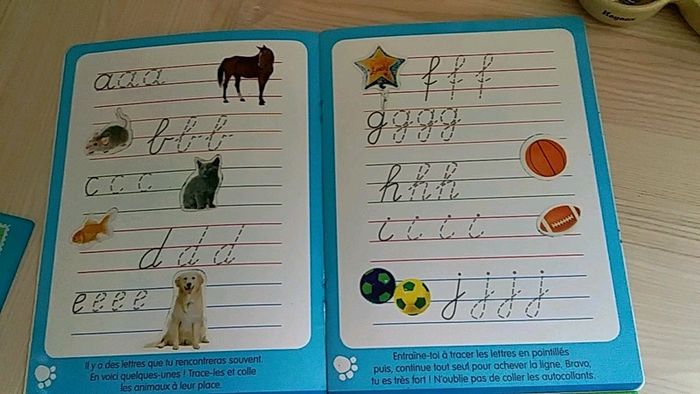 a a a
b b b
c c c
d d d
e e e e
Il y a des lettres que tu rencontreras souvent.
En voici quelques-unes ! Trace-les et colle
les animaux à leur place.
f f f
g g g g
h h h
i i i i
j j j j
Entraîne-toi à tracer les lettres en pointillés
puis, continue tout seul pour achever la ligne. Bravo,
tu es très fort ! N'oublie pas de coller les autocollants.